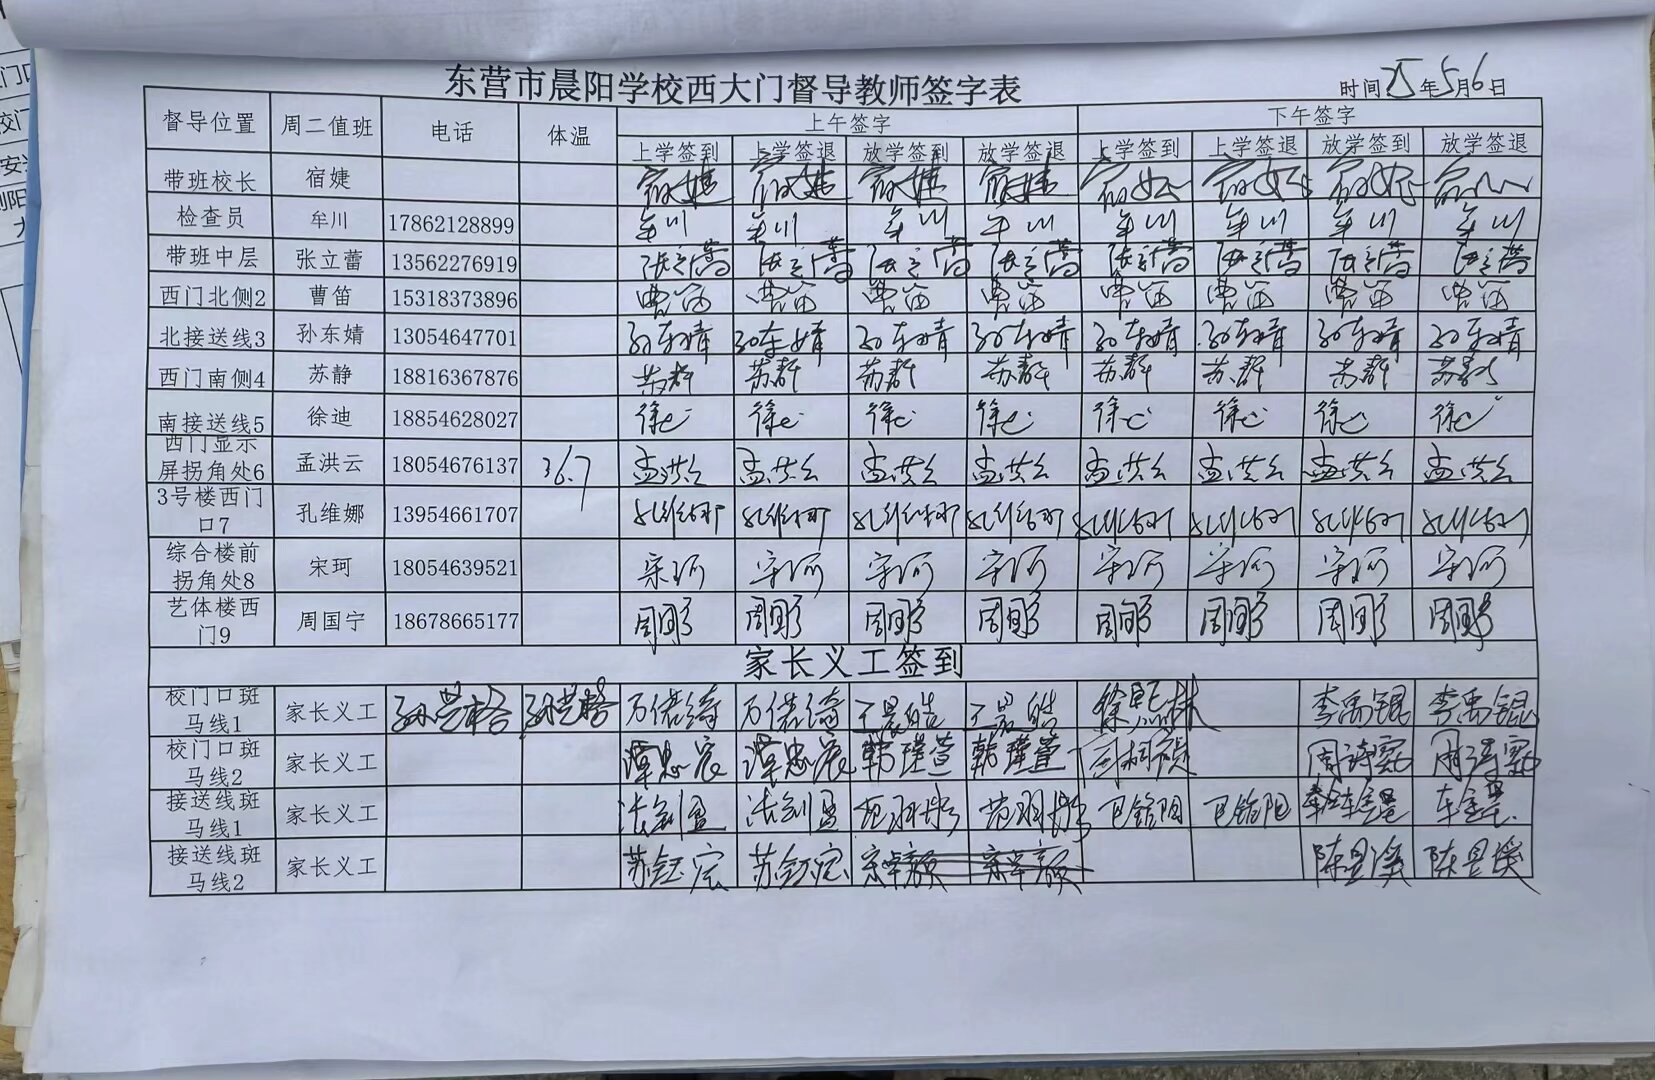 东营市晨阳学校西大门督导教师签字表
时间25年5月6日
督导位置 周二值班 电话 体温 上午签字 下午签字
上学签到 上学签退 放学签到 放学签退 上学签到 上学签退 放学签到 放学签退
带班校长 宿婕 宿婕 宿婕 宿婕 宿婕 宿婕 宿婕 宿婕
检查员 牟川 17862128899 牟川 牟川 牟川 牟川 牟川 牟川 牟川 牟川
带班中层 张立蕾 13562276919 张立蕾 张立蕾 张立蕾 张立蕾 张立蕾 张立蕾 张立蕾 张立蕾
西门北侧2 曹笛 15318373896 曹笛 曹笛 曹笛 曹笛 曹笛 曹笛 曹笛 曹笛
北接送线3 孙东婧 13054647701 孙东婧 孙东婧 孙东婧 孙东婧 孙东婧 孙东婧 孙东婧 孙东婧
西门南侧4 苏静 18816367876 苏静 苏静 苏静 苏静 苏静 苏静 苏静 苏静
南接送线5 徐迪 18854628027 徐迪 徐迪 徐迪 徐迪 徐迪 徐迪 徐迪 徐迪
西门显示
屏拐角处6 孟洪云 18054676137 36.7 孟洪云 孟洪云 孟洪云 孟洪云 孟洪云 孟洪云 孟洪云 孟洪云
3号楼西门
口7 孔维娜 13954661707 孔维娜 孔维娜 孔维娜 孔维娜 孔维娜 孔维娜 孔维娜 孔维娜
综合楼前
拐角处8 宋珂 18054639521 宋珂 宋珂 宋珂 宋珂 宋珂 宋珂 宋珂 宋珂
艺体楼西
门9 周国宁 18678665177 周国宁 周国宁 周国宁 周国宁 周国宁 周国宁 周国宁 周国宁
家长义工签到
校门口斑
马线1 家长义工 万偌绮 万偌绮 王晨皓 王晨皓 李禹锟 李禹锟
校门口斑
马线2 家长义工 谭忠宸 谭忠宸 韩瑾萱 韩瑾萱 周诗霏 周诗霏
接送线斑
马线1 家长义工 范羽彤 范羽彤 巴铭阳 巴铭阳
接送线斑
马线2 家长义工 苏钰宸 苏钰宸 宋卓颜 宋卓颜 陈昱溪 陈昱溪